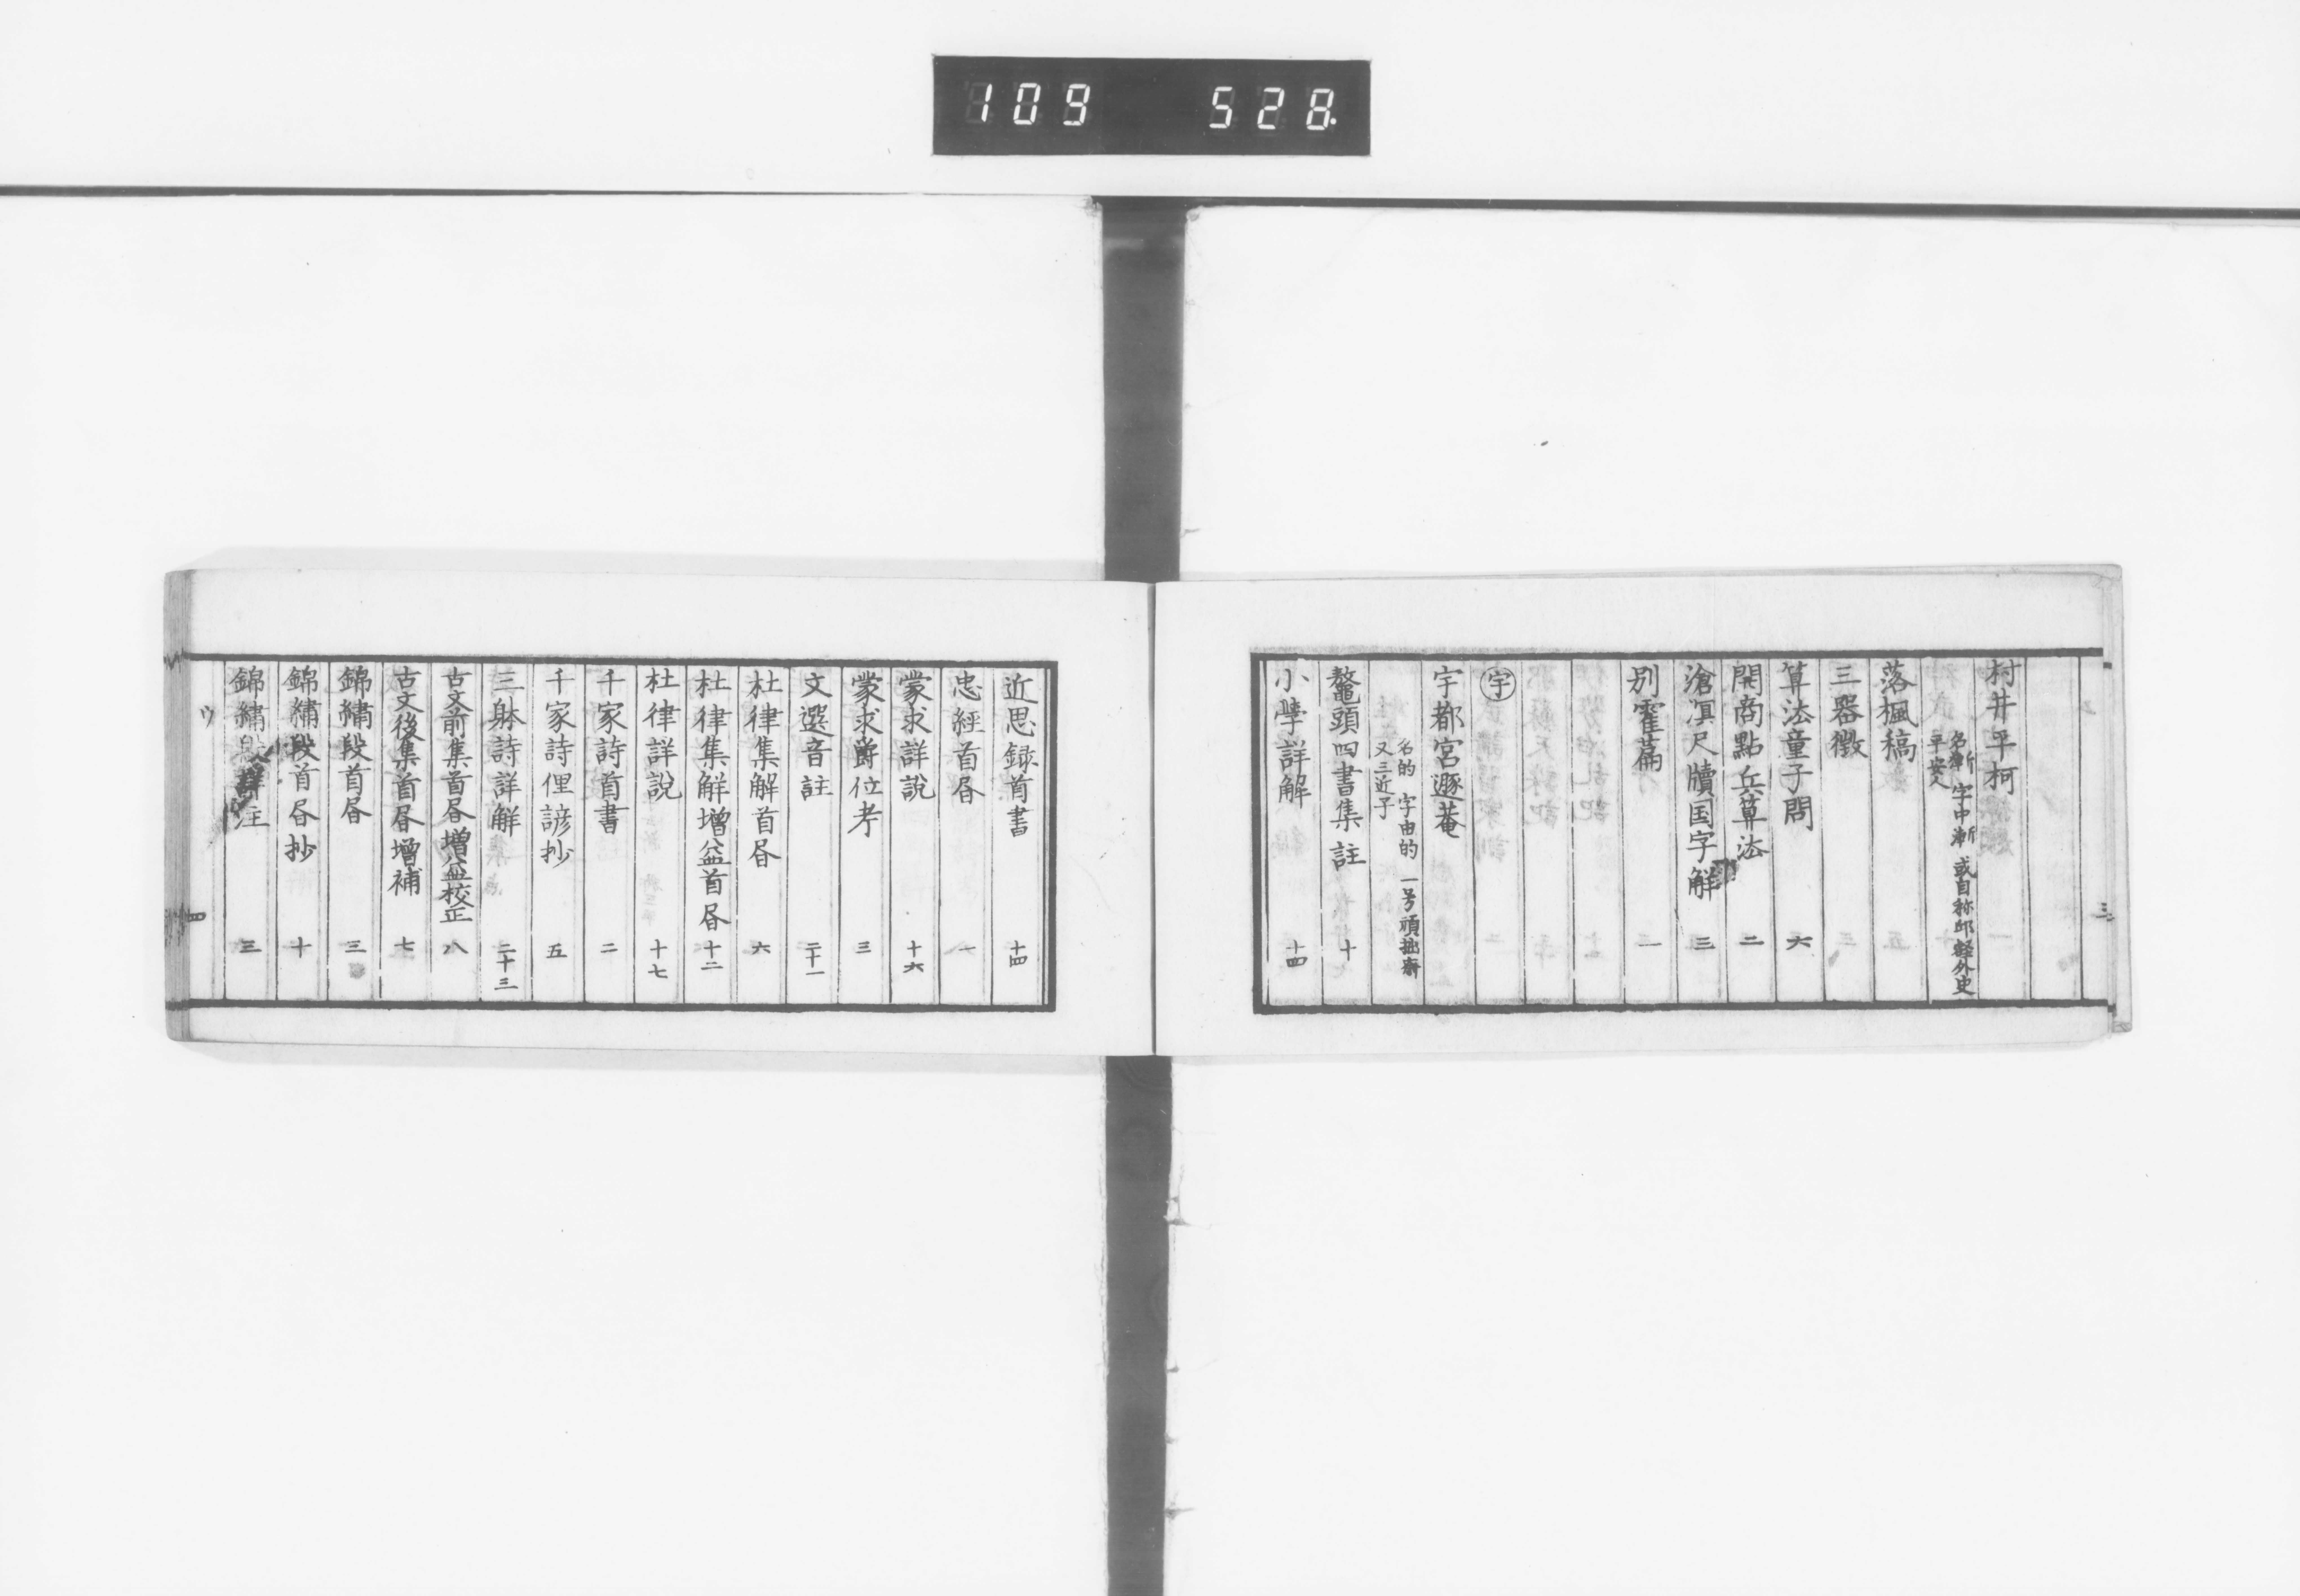 109 528
三
村井平柯
名漸 字中漸 或自称邱壑外史
平安人
落楓稿 五
三器徵 三
算法童子問 六
開商點兵算法 二
滄溟尺牘国字解 三
別霍篇 一
宇
宇都宮遯菴
名的 字由的 一号頑拙齋
又三近子
鼇頭四書集註 十
小學詳解 十四
近思録首書 十四
忠經首昏 一
蒙求詳說 十六
蒙求爵位考 三
文選音註 二十一
杜律集解首昏 六
杜律集解增益首昏 十二
杜律詳說 十七
千家詩首書 二
千家詩俚諺抄 五
三躰詩詳解 二十三
古文前集首昏增益校正 八
古文後集首昏增補 七
錦繡段首昏 三
錦繡段首昏抄 十
錦繡段詳注 三
ウ 四